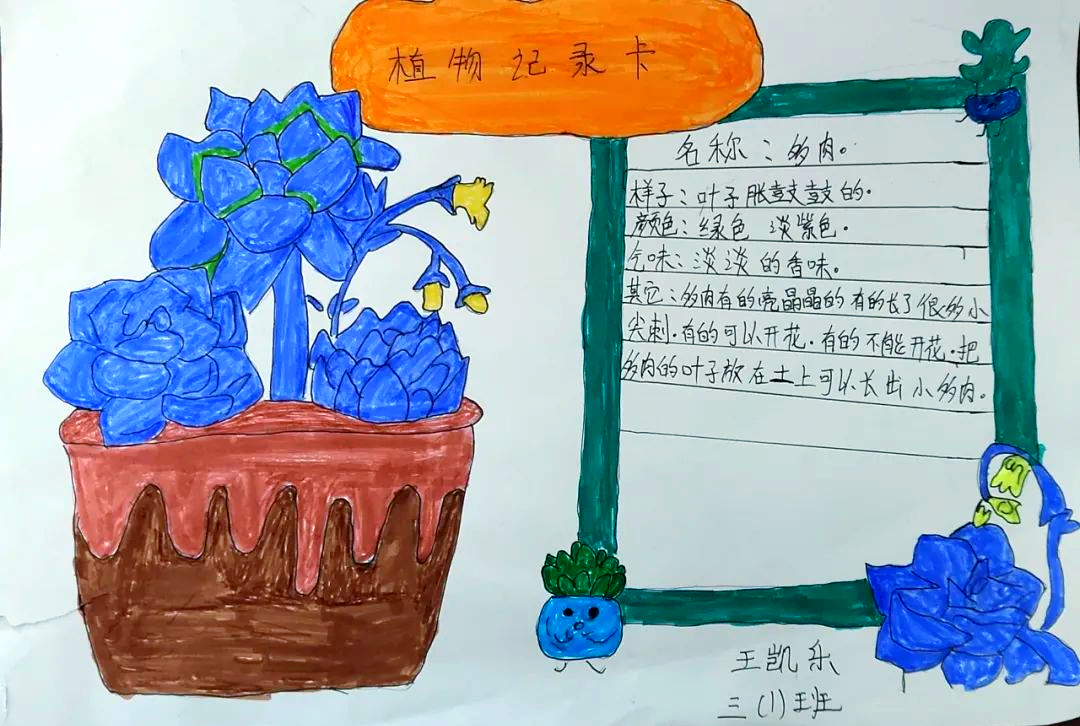 植物记录卡
名称：多肉。
样子：叶子胀鼓鼓的。
颜色：绿色 淡紫色。
气味：淡淡的香味。
其它：多肉有的亮晶晶的有的长了很多小
尖刺.有的可以开花.有的不能开花.把
多肉的叶子放在土上可以长出小多肉。
王凯乐
三(1)班